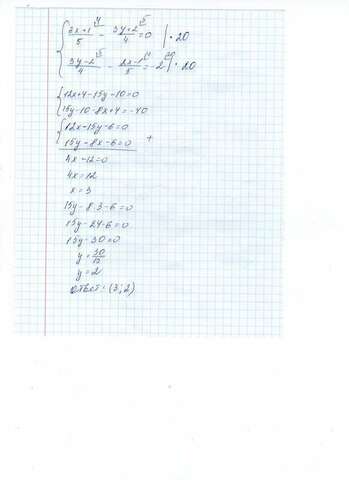 { (3x+1)/5 ⁴ - (3y+2)/4 ⁵ = 0 | · 20
{ (3y-2)/4 ⁵ - (2x-1)/5 ⁴ = -2 ²⁰ | · 20
{ 12x+4-15y-10=0
{ 15y-10-8x+4=-40
{ 12x-15y-6=0
{ 15y-8x-6=0 +
4x-12=0
4x=12
x=3
15y-8·3-6=0
15y-24-6=0
15y-30=0
y=30/15
y=2
ответ: (3;2)